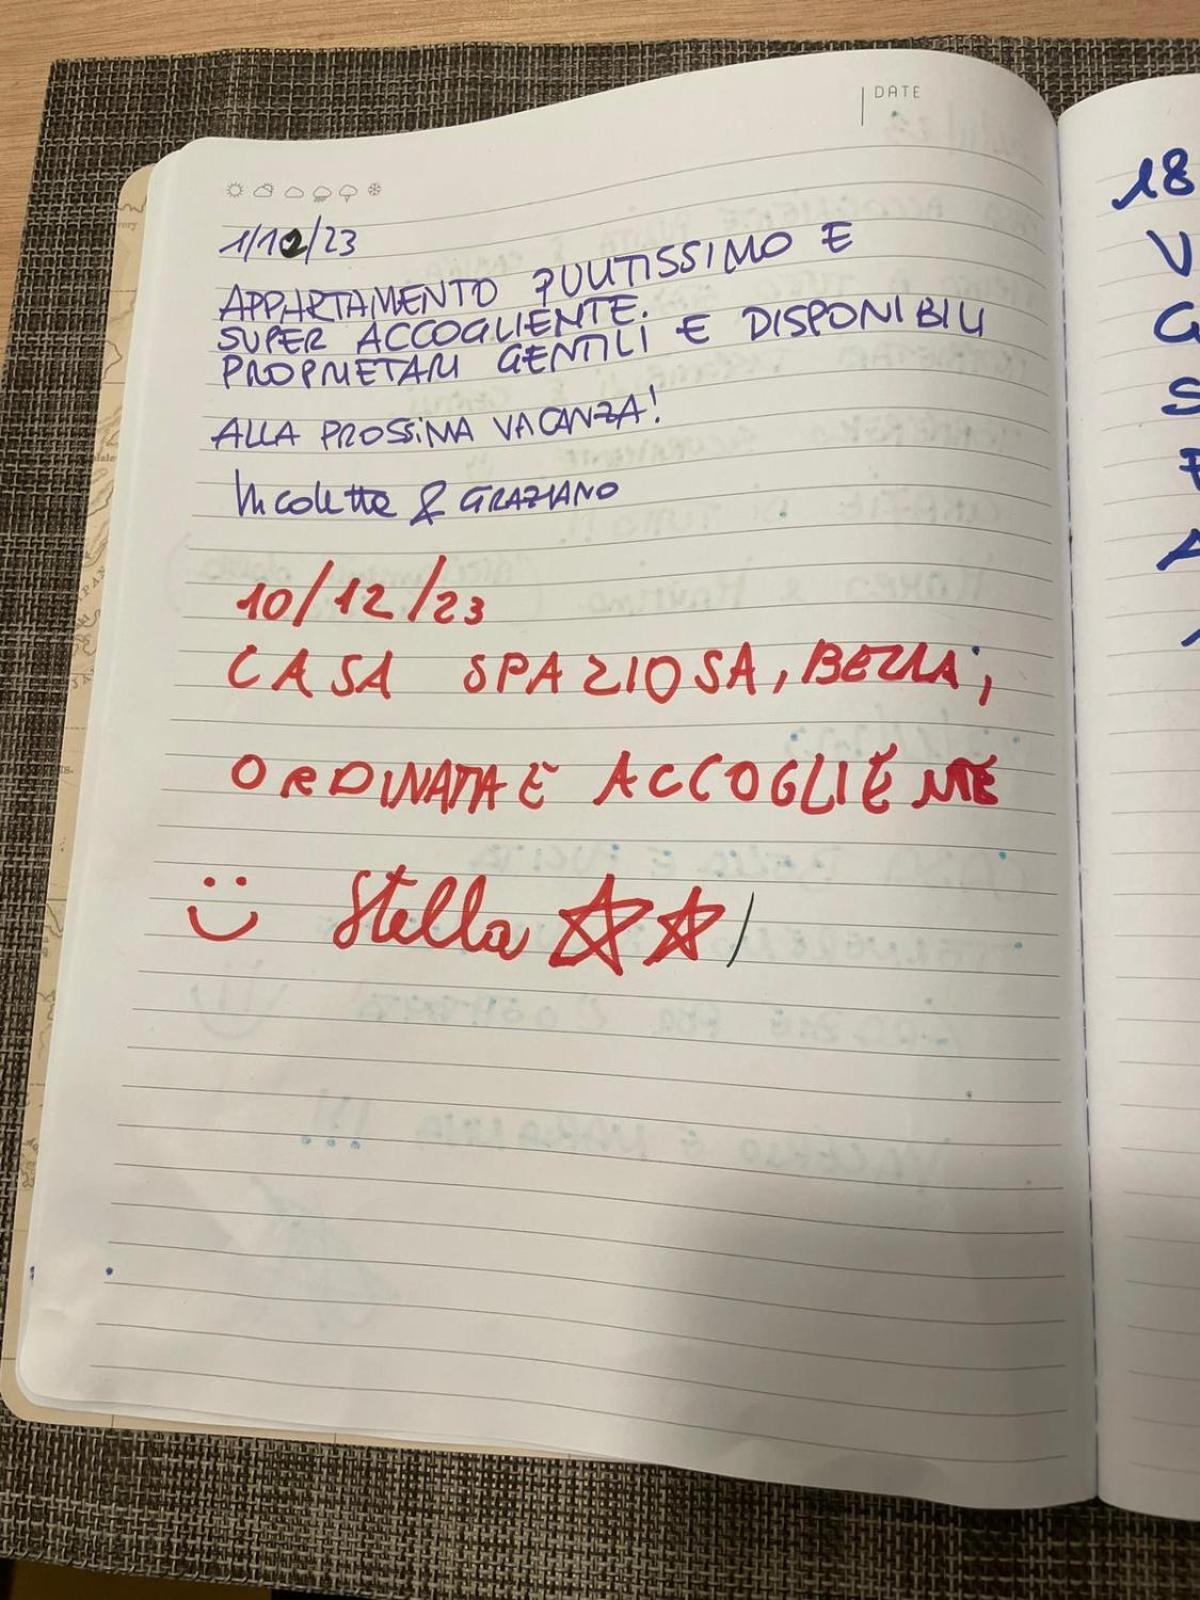 DATE
1/12/23
APPARTAMENTO PULITISSIMO E
SUPER ACCOGLIENTE.
PROPRIETARI GENTILI E DISPONIBILI
ALLA PROSSIMA VACANZA!
Nicoletta & GRAZIANO
10/12/23
CASA SPAZIOSA, BELLA,
ORDINATA E ACCOGLIENTE
Stella
18